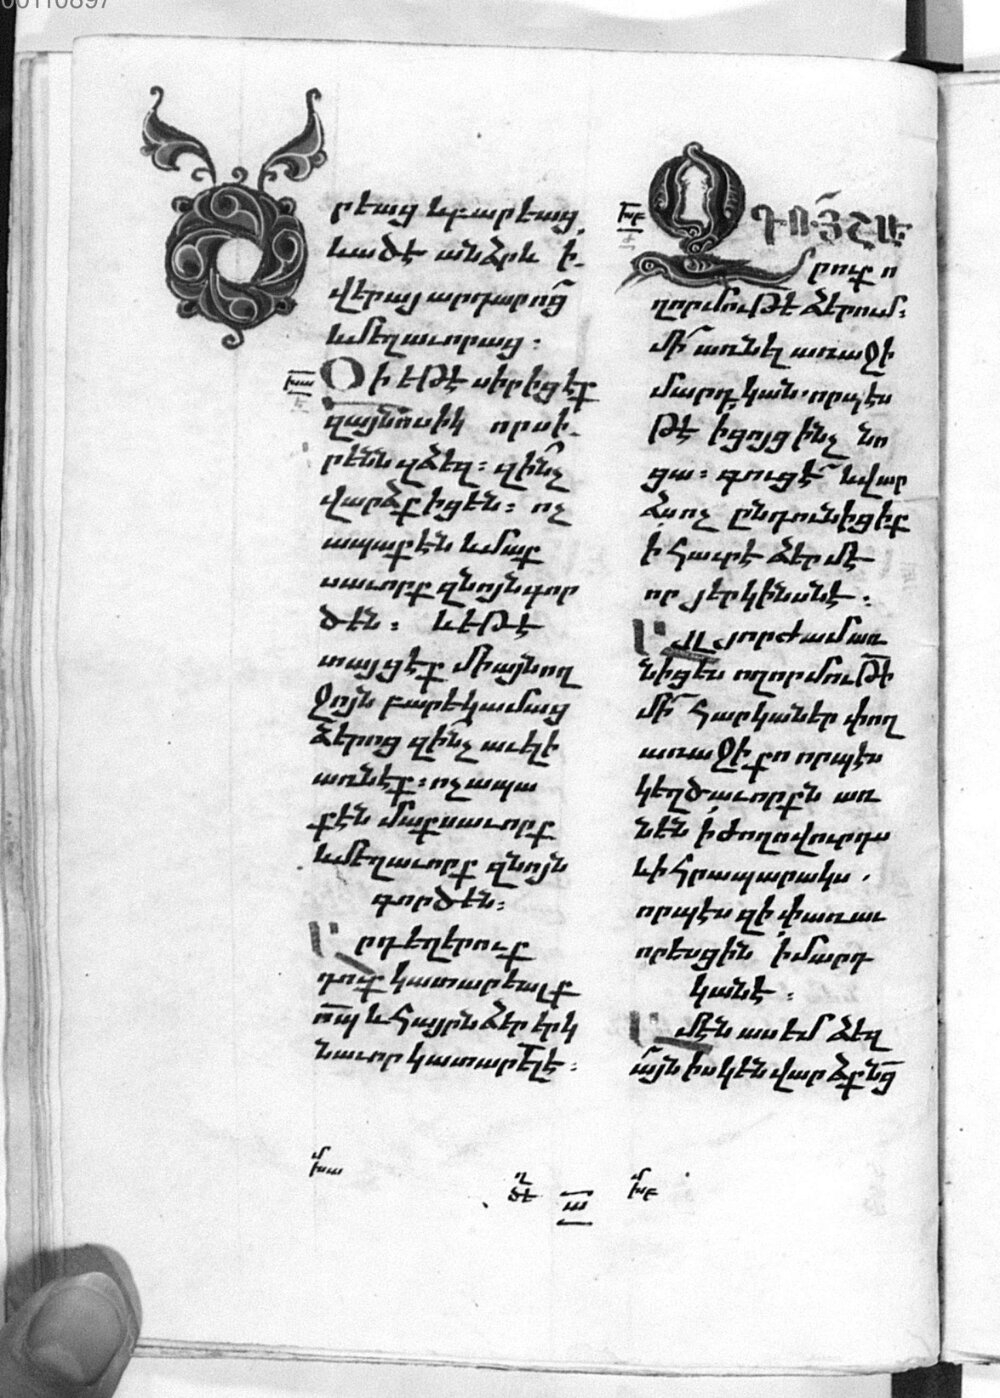 00110897
րէաց և բարէաց
և ածէ անձրև ի
վերայ արդարոց
և մեղաւորաց։
խա
Զի եթէ սիրիցէք
զայնոսիկ որ սի
րենն զձեզ։ զինչ
վարձք իցեն։ ոչ
ապաքէն և մաք
սաւորք զնոյն գոր
ծեն։ և եթէ
տայցէք միայն ող
ջոյն բարեկամաց
ձերոց զինչ աւելի
առնէք։ ոչ ապա
քէն մաքսաւորք
և մեղաւորք զնոյն
գործեն։
Արդ եղերուք
դուք կատարեալք
որպ և հայրն ձեր երկ
նաւոր կատարել է։
խբ
Զգոյշ լե
րուք ո
ղորմութե ձերում։
մի առնել առաջի
մարդկան. որպէս
թէ ի ցոյց ինչ նո
ցա։ գուցէ և վար
ձս ոչ ընդունիցիք
ի հաւրէ ձերմէ
որ յերկինսն է։
Այլ յորժամ առ
նիցես ողորմութի
մի հարկաներ փող
առաջի քո որպէս
կեղծաւորքն առ
նեն ի ժողովուրդս
և ի հրապարակս.
որպէս զի փառաւ
որեսցին ի մարդ
կանէ։
Ամէն ասեմ ձեզ
այն իսկ են վարձք նց
մ
խա
ղ
ծէ
ա
մ
խբ